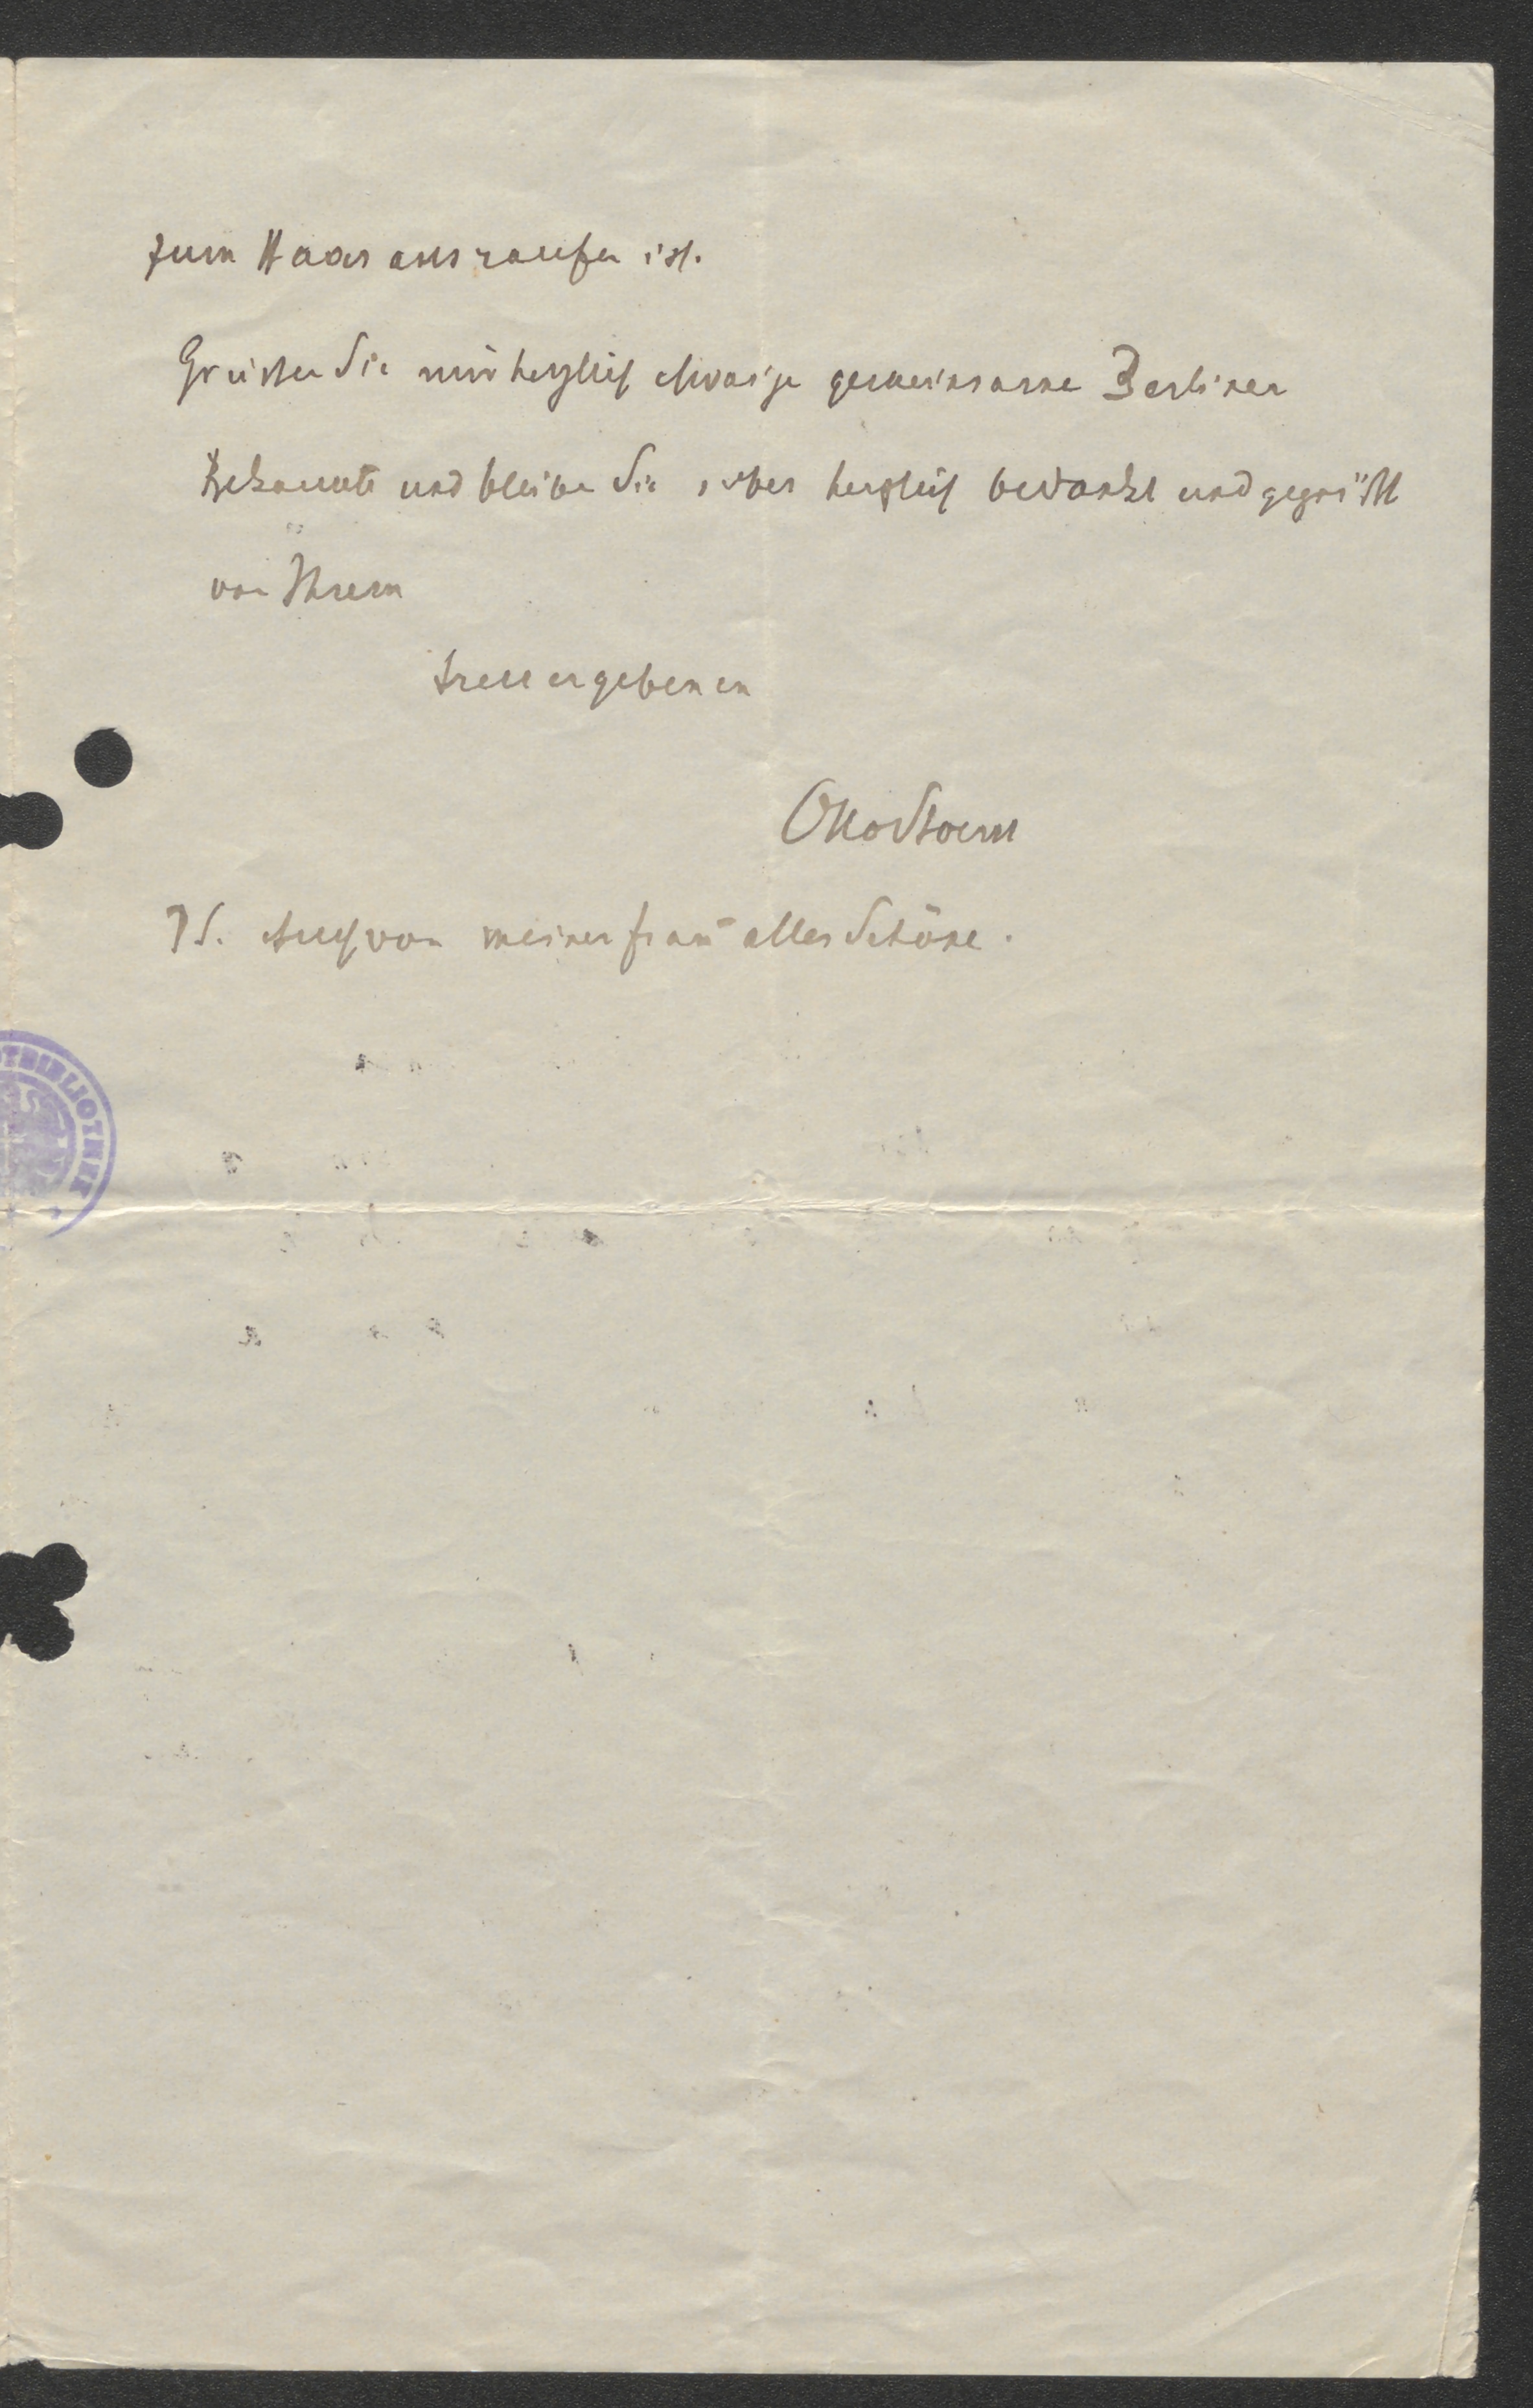 zum Haarausraufen ist.
Grüssen Sie mir herzlich etwaige gemeinsame Berliner
Bekannte und bleiben Sie selber herzlich bedankt und gegrüsst
von Ihrem
treuergebenen
Otto Stoessl
PS. Auch von meiner Frau alles Schöne.
OTHIBLIOTHEK